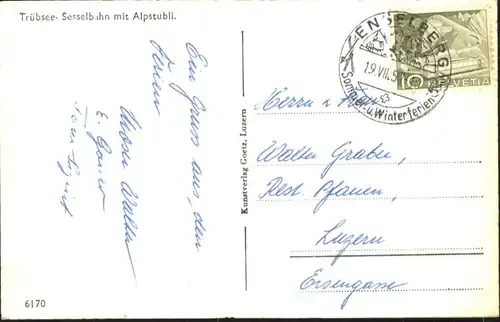 Trübsee- Sesselbahn mit Alpstubli.
Ein Gruss aus den
Ferien
Walter
E.
Kunstverlag Goetz, Luzern
ENGELBERG
19.VII.5
Sommer- u. Winterferien
10
HELVETIA
Herrn u. Frau
Walter Graber,
Rest. Pfauen,
Luzern
Eisengasse
6170